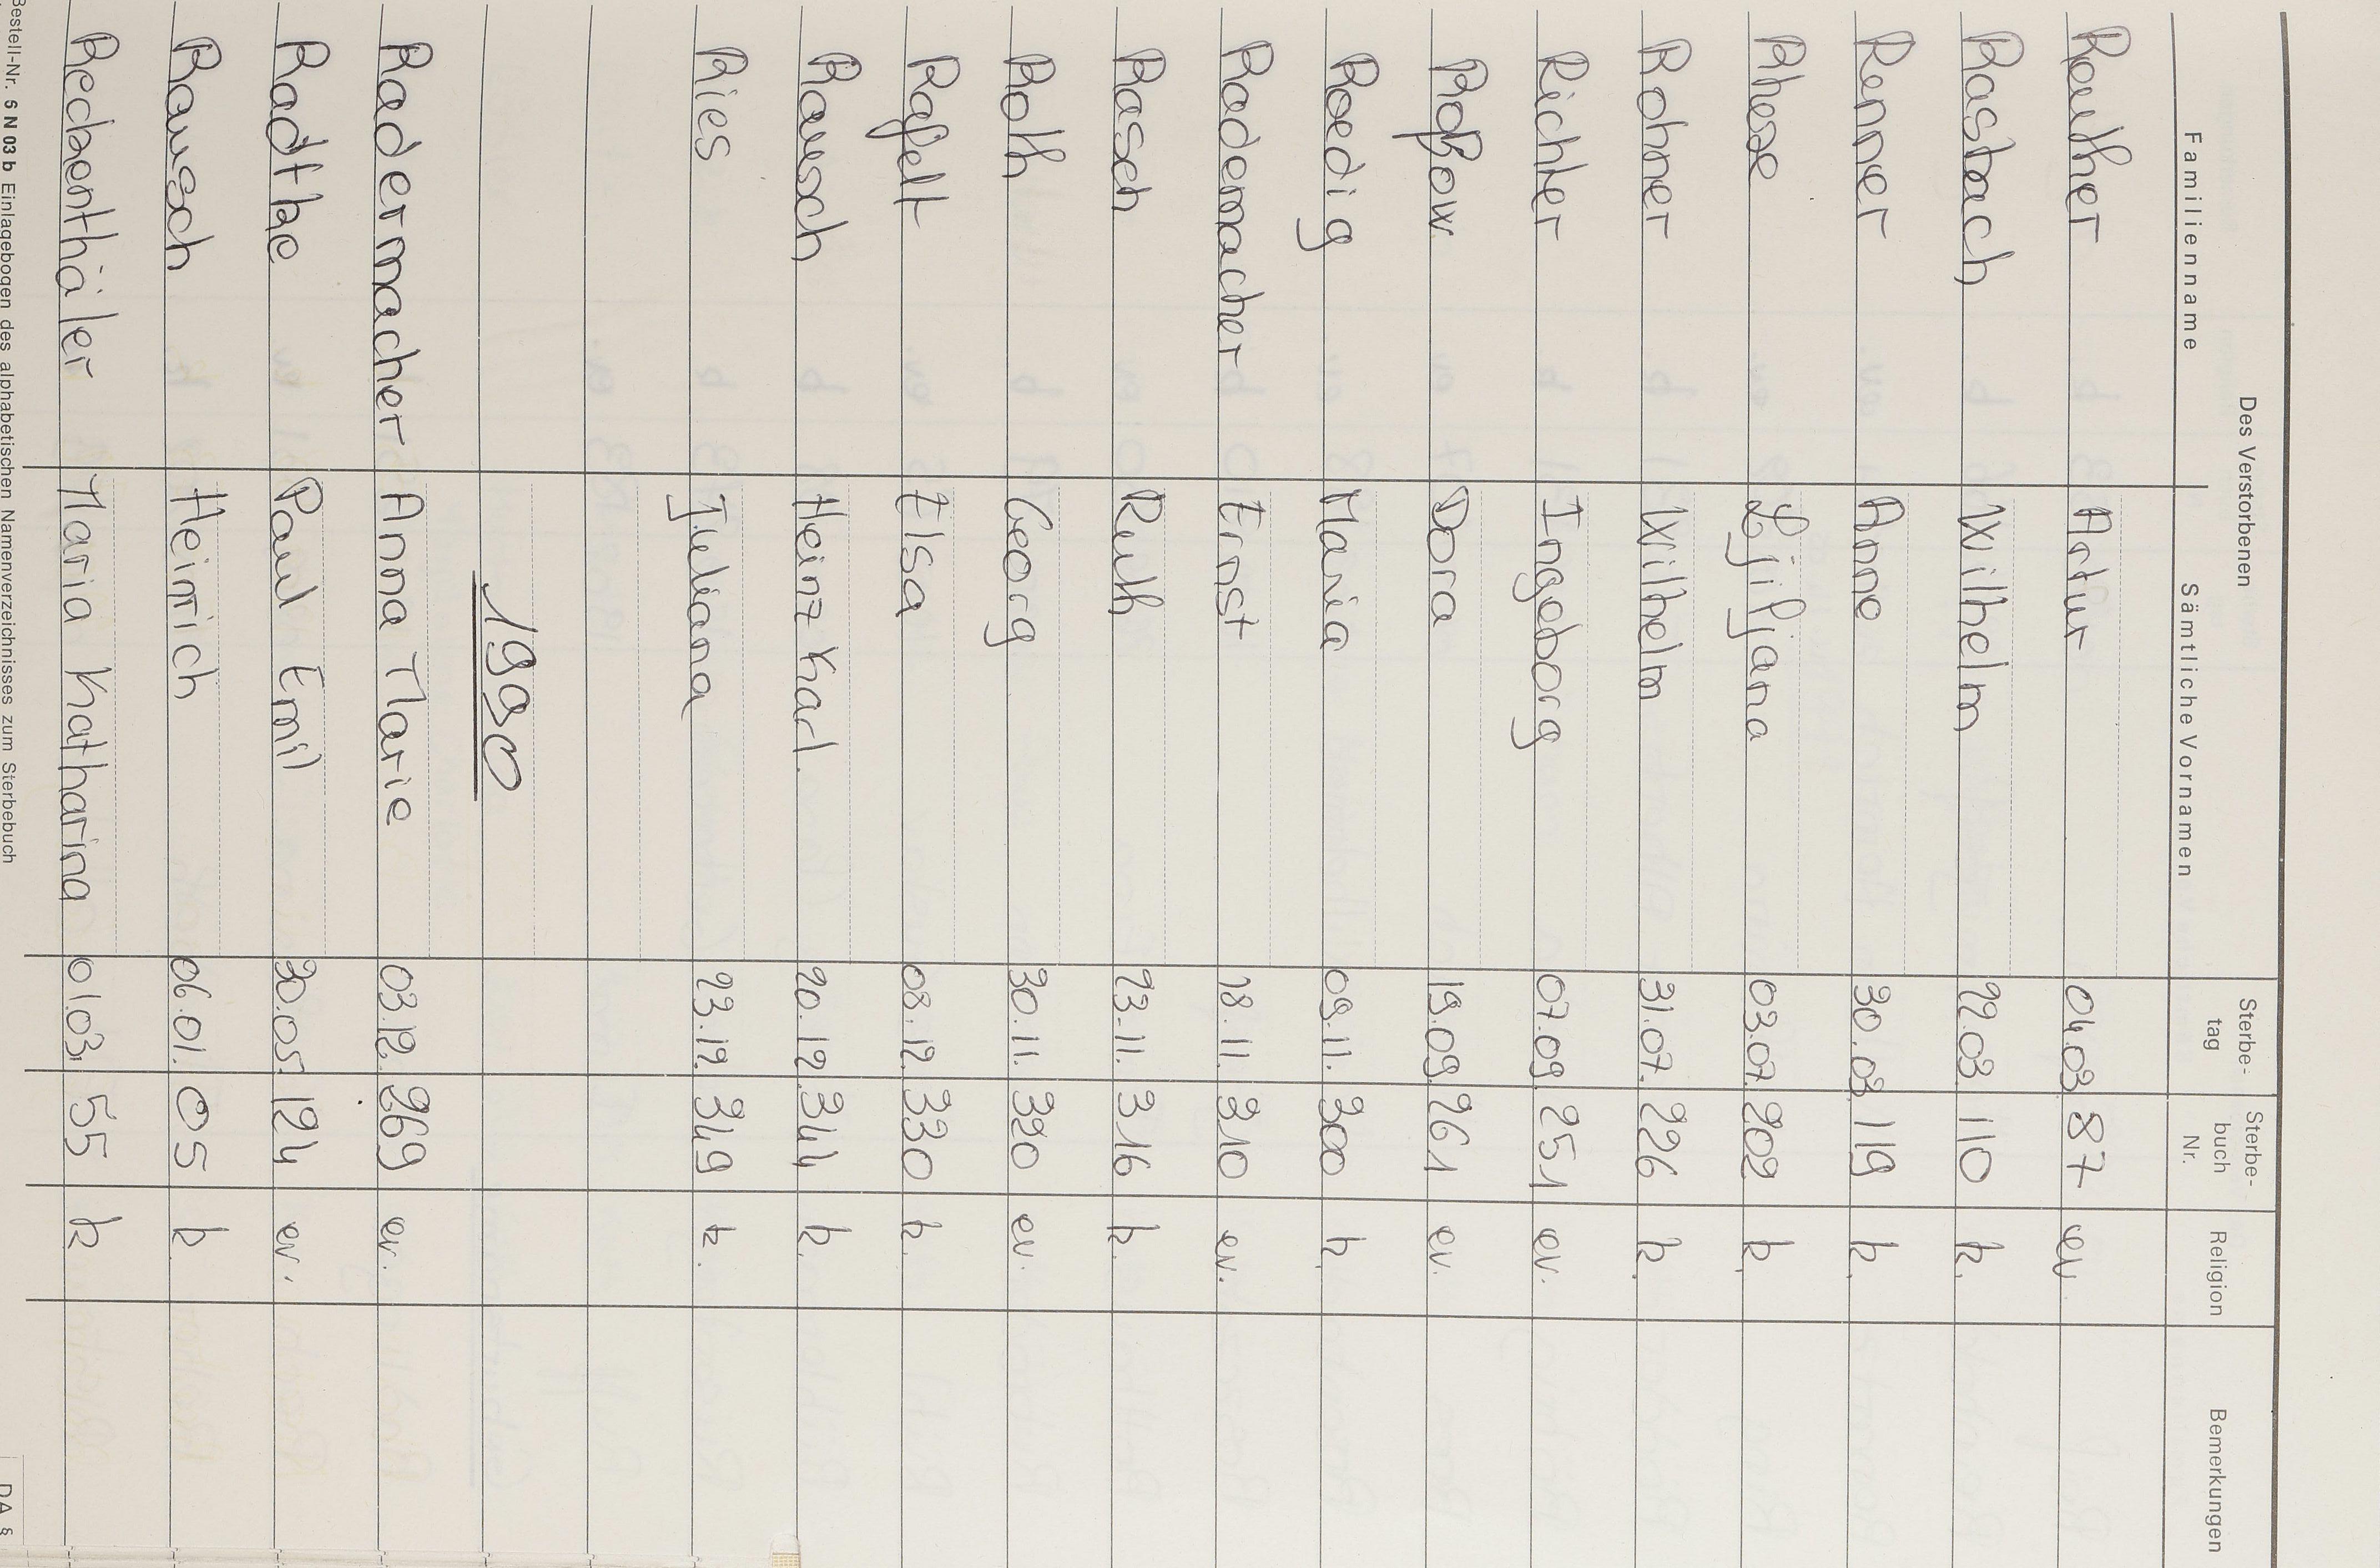 Des Verstorbenen
Familienname Sämtliche Vornamen Sterbe-tag Sterbe-buch Nr. Religion Bemerkungen
Reuther Artur 04.03 87 ev.
Rasbach Wilhelm 22.03 110 k.
Renner Anne 30.03 119 k.
Rhese Ljiljana 03.07. 202 k.
Rohner Wilhelm 31.07. 226 k.
Richter Ingeborg 07.09. 251 ev.
Roßow Dora 19.09. 261 ev.
Roedig Maria 09.11. 300 k.
Rademacher Ernst 18.11. 310 ev.
Rasch Ruth 23.11. 316 k.
Roth Georg 30.11. 320 ev.
Rafelt Elsa 08.12. 330 k.
Rausch Heinz Karl 20.12. 344 k.
Ries Juliana 23.12. 349 k.
1990
Radermacher Anna Marie 03.12. 269 ev.
Radtke Paul Emil 30.05. 124 ev.
Rausch Heinrich 06.01. 05 k.
Reckenthäler Maria Katharina 01.03. 55 k
Bestell-Nr. 6 N 03 b Einlagebogen des alphabetischen Namenverzeichnisses zum Sterbebuch DA §